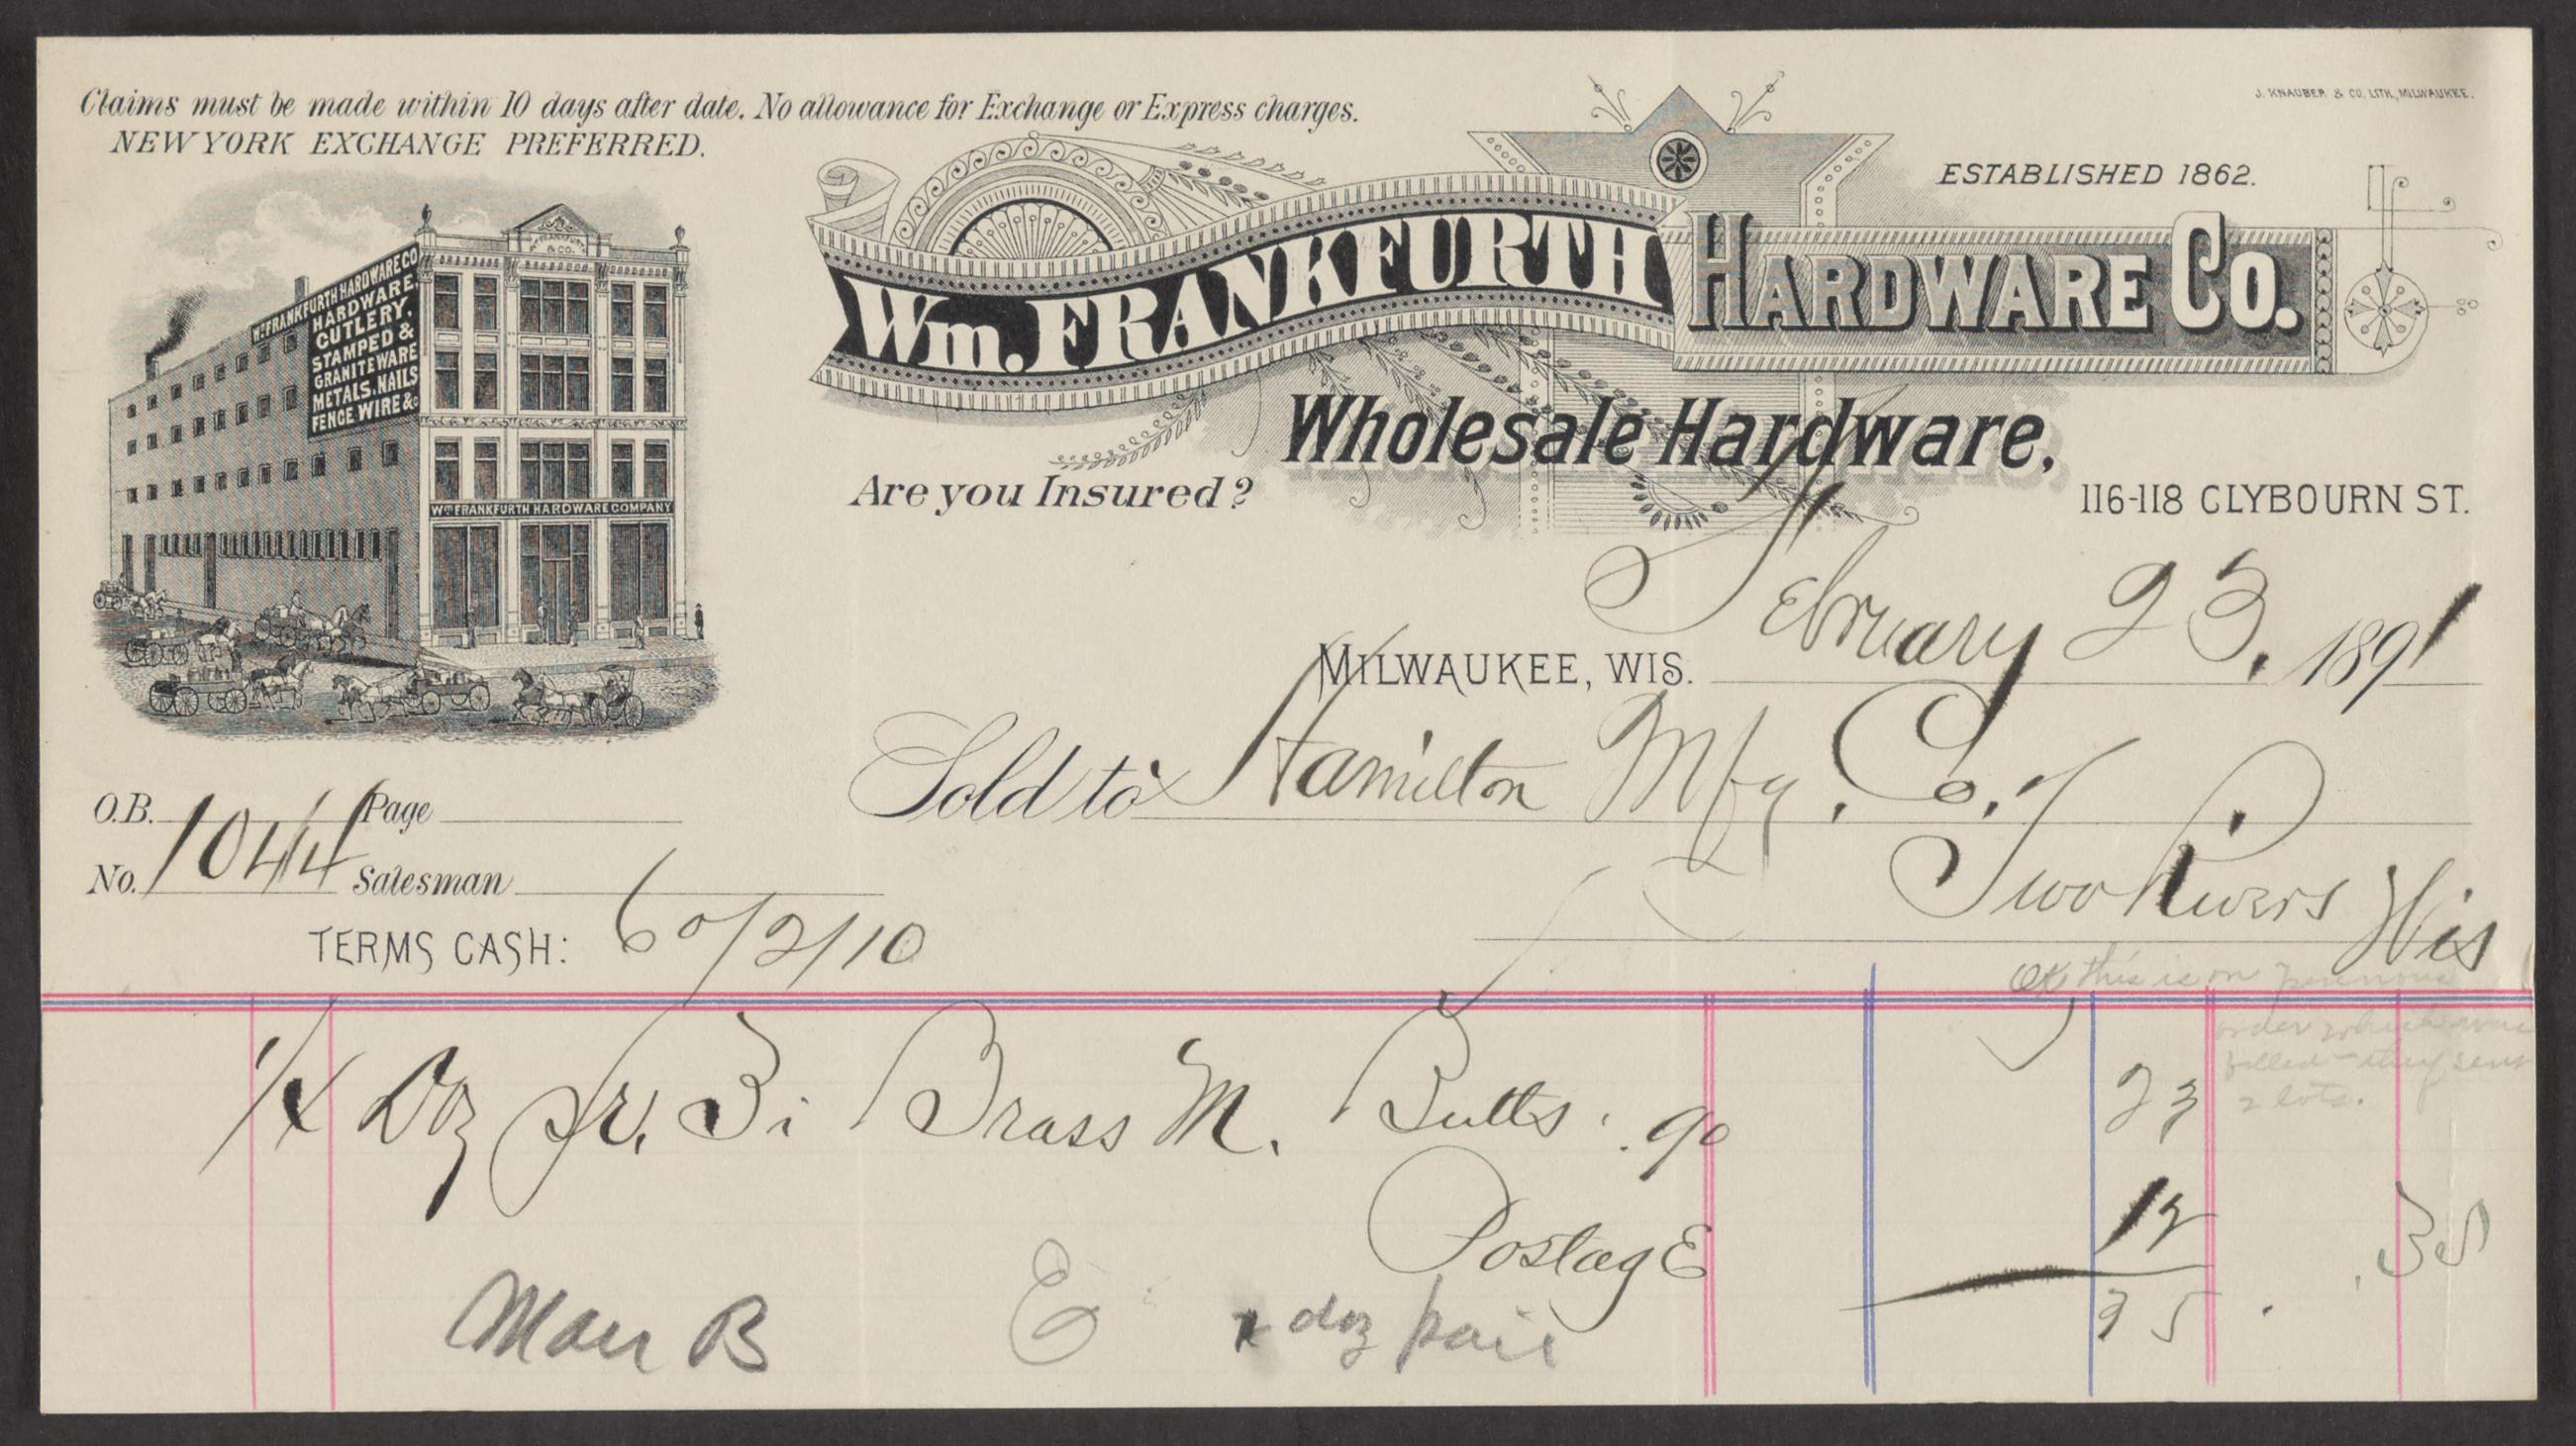 Claims must be made within 10 days after date. No allowance for Exchange or Express charges.
NEW YORK EXCHANGE PREFERRED.
J. KNAUBER & CO. LITH., MILWAUKEE.
ESTABLISHED 1862.
Wm. FRANKFURTH HARDWARE CO.
Wholesale Hardware,
Are you Insured?
116-118 CLYBOURN ST.
Wm FRANKFURTH & CO.
Wm FRANKFURTH HARDWARE CO
HARDWARE,
CUTLERY,
STAMPED &
GRANITEWARE
METALS, NAILS
FENCE WIRE &c
Wm FRANKFURTH HARDWARE COMPANY
MILWAUKEE, WIS. February 23, 1891
Sold to Hamilton Mfg. Co.,
Two Rivers Wis
O.B. Page
No. 1044 Salesman
TERMS CASH: 60/2/10
OK this is on
order which was
filled - they sent
2 lots.
1/4 Doz Pr. 3i Brass M. Butts. 90 23
Postage 12
35 .35
B E doz pair